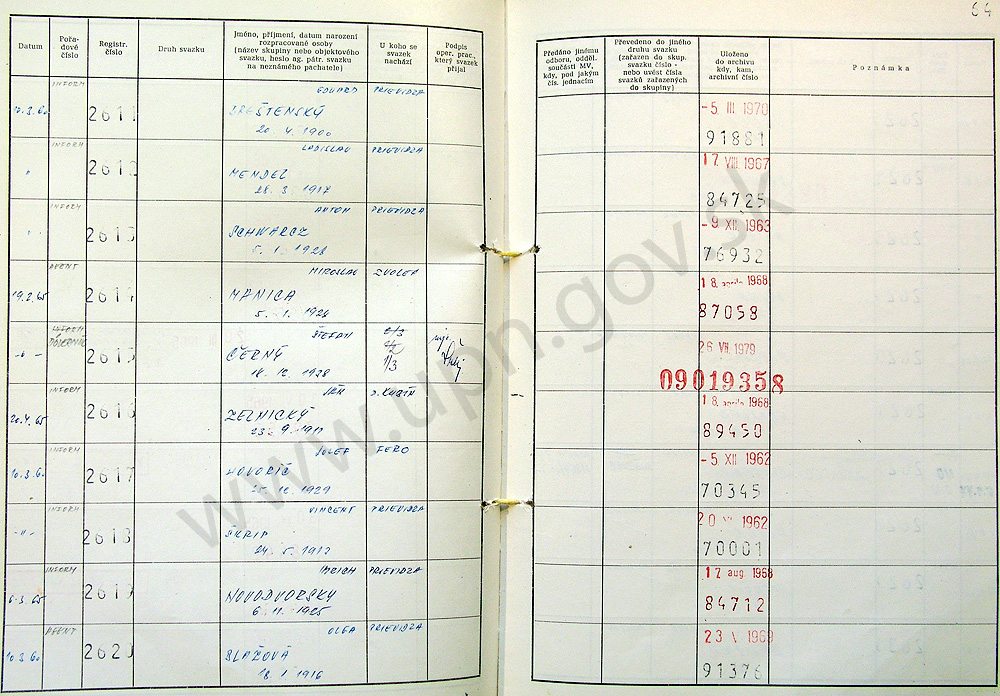 64
Datum
Pořa-
dové
číslo
Registr.
číslo
Druh svazku
Jméno, příjmení, datum narození
rozpracované osoby
(název skupiny nebo objektového
svazku, heslo ag. pátr. svazku
na neznámého pachatele)
U koho se
svazek
nachází
Podpis
oper. prac.,
který svazek
přijal
Předáno jinému
odboru, odděl.
součásti MV,
kdy, pod jakým
čís. jednacím
Převedeno do jiného
druhu svazku
(zařazen do skup.
svazku číslo -
nebo uvést čísla
svazků zařazených
do skupiny)
Uloženo
do archivu
kdy, kam,
archivní číslo
Poznámka
INFORM EDUARD PRIEVIDZA
10.3.60 2611
20. 4. 1900
-5. III 1970
91881
INFORM LADISLAV PRIEVIDZA
" 2612 MENDEL
28. 3. 1917
17. VIII. 1967
84725
INFORM ANTON PRIEVIDZA
" 2613 SCHWARCZ
5. 1. 1928
-9. XII. 1963
76932
AGENT MIROSLAV ZVOLEN
19.2.65 2614 MANICA
5. 1. 1926
18. aprila 1968
87058
ŠTEFAN
-"- 2615 ČERNÝ
18. 12. 1928
26 VII. 1979
09019358
INFORM JÁN D. KUBÍN
20.4.65 2616 ZELNICKÝ
18. aprila 1968
89450
INFORM JOZEF FERO
10.3.60 2617
-5. XII 1962
70345
INFORM VINCENT PRIEVIDZA
-"- 2618 ŠKRIP
24. 5. 1912
20 1962
70001
INFORM PRIEVIDZA
2619 NOVODVORSKY
6. 11. 1925
17 aug. 1968
84712
AGENT OLGA PRIEVIDZA
10.3.60 2620 BLAŽOVÁ
18 1 1916
23 1969
91376
www.upn.gov.sk